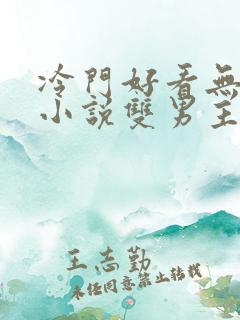 冷門好看無
小說雙男主
王志勤
未经同意禁止转载